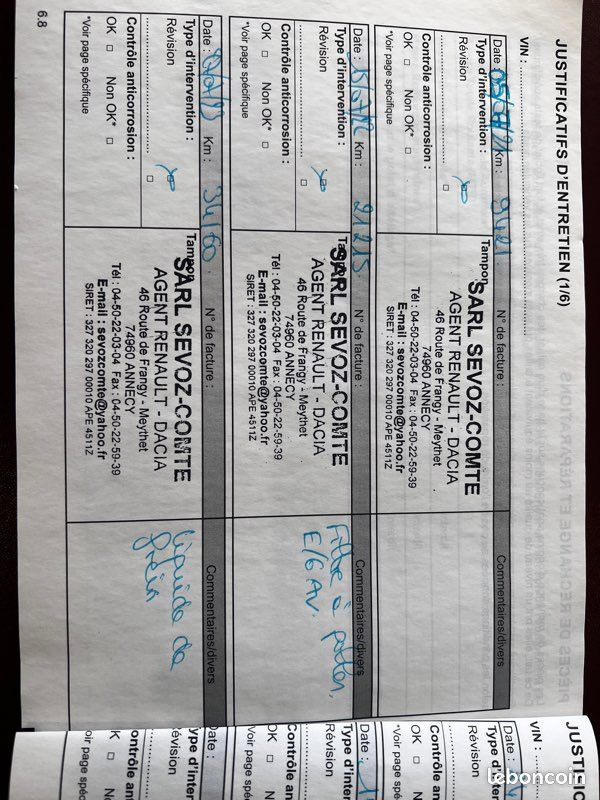 JUSTIFICATIFS D'ENTRETIEN (1/6)
VIN :
Date : 05/07/21 Km : 9421 N° de facture : Commentaires/divers
Type d'intervention :
Révision
Contrôle anticorrosion :
OK □ Non OK* □
*Voir page spécifique
Tampon
SARL SEVOZ-COMTE
AGENT RENAULT - DACIA
46 Route de Frangy - Meythet
74960 ANNECY
Tél : 04-50-22-03-04 Fax : 04-50-22-59-39
E-mail : sevozcomte@yahoo.fr
SIRET : 327 320 297 00010 APE 4511Z
Date : Km : 21215 N° de facture : Commentaires/divers
Type d'intervention :
Révision
Contrôle anticorrosion :
OK □ Non OK* □
*Voir page spécifique
Tampon
SARL SEVOZ-COMTE
AGENT RENAULT - DACIA
46 Route de Frangy - Meythet
74960 ANNECY
Tél : 04-50-22-03-04 Fax : 04-50-22-59-39
E-mail : sevozcomte@yahoo.fr
SIRET : 327 320 297 00010 APE 4511Z
Filtre à pollen,
E/G AV.
Date : Km : 34160 N° de facture : Commentaires/divers
Type d'intervention :
Révision
Contrôle anticorrosion :
OK □ Non OK* □
*Voir page spécifique
Tampon
SARL SEVOZ-COMTE
AGENT RENAULT - DACIA
46 Route de Frangy - Meythet
74960 ANNECY
Tél : 04-50-22-03-04 Fax : 04-50-22-59-39
E-mail : sevozcomte@yahoo.fr
SIRET : 327 320 297 00010 APE 4511Z
liquide de
frein
6.8
JUSTIFIC
VIN :
Date :
Type d'inter
Révision
Contrôle an
OK □
*Voir page spé
Date : 1
Type d'inter
Révision
Contrôle an
OK □
*Voir page spé
Date :
Type d'inter
Révision
ontrôle an
OK □
oir page spéc
leboncoin